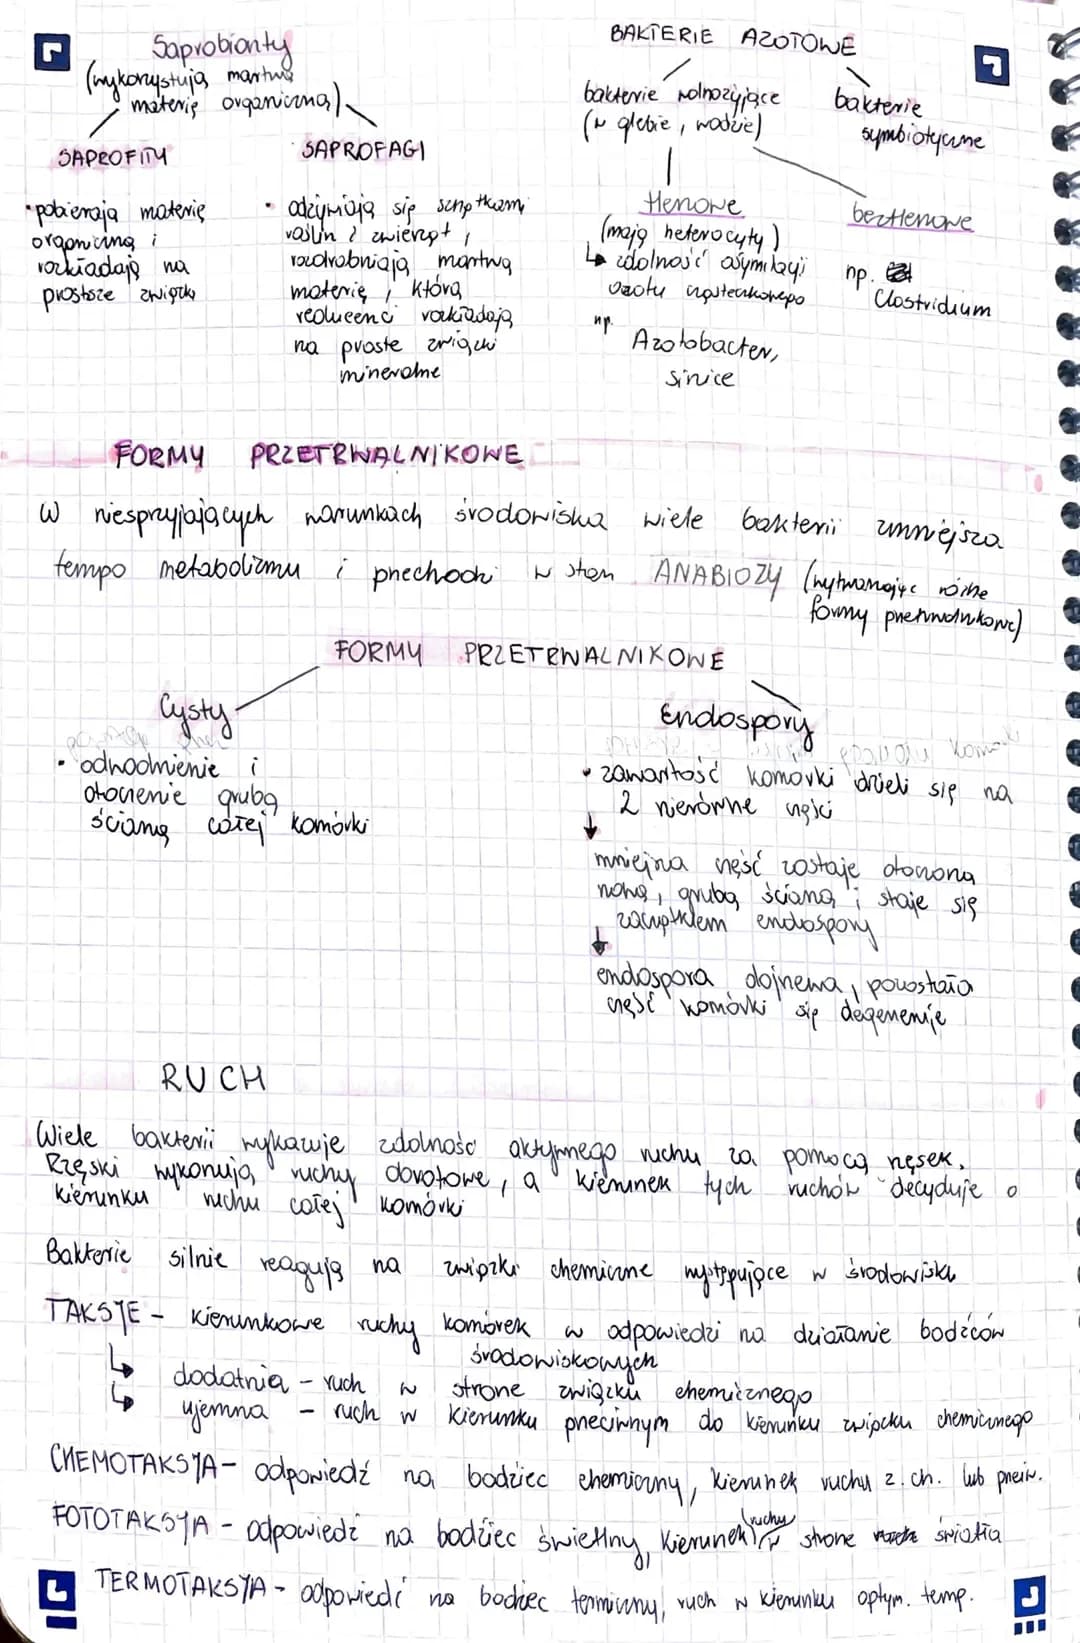 Saprobionty
(wykorzystują martwą
materię organiczną)
SAPROFITY
• pobierają materię
organiczną i
rozkładają na
prostsze związki
SAPROFAGI
• odżywiają się szczątkami
roślin i zwierząt,
rozdrabniają martwą
materię, którą
reducenci rozkładają
na proste związki
mineralne
BAKTERIE AZOTOWE
bakterie wolnożyjące
(w glebie, wodzie)
bakterie
symbiotyczne
tlenowe
(mają heterocyty)
↳ zdolność asymilacji
azotu cząsteczkowego
np.
Azotobacter,
sinice
beztlenowe
np.
Clostridium
FORMY PRZETRWALNIKOWE
W niesprzyjających warunkach środowiska wiele bakterii zmniejsza
tempo metabolizmu i przechodzi w stan ANABIOZY (wytwarzając różne
formy przetrwalnikowe)
FORMY PRZETRWALNIKOWE
Cysty
• odwodnienie i
otoczenie grubą
ścianą całej komórki
Endospory
• zawartość komórki dzieli się na
2 nierówne części
↓
mniejsza część zostaje otoczona
nową, grubą ścianą i staje się
zaczątkiem endospory
↓
endospora dojrzewa, pozostała
część komórki się degeneruje
RUCH
Wiele bakterii wykazuje zdolność aktywnego ruchu za pomocą rzęsek.
Rzęski wykonują ruchy obrotowe, a kierunek tych ruchów decyduje o
kierunku ruchu całej komórki
Bakterie silnie reagują na związki chemiczne występujące w środowisku
TAKSJE - kierunkowe ruchy komórek w odpowiedzi na działanie bodźców
środowiskowych
↳ dodatnia - ruch w strone związku chemicznego
↳ ujemna - ruch w kierunku przeciwnym do kierunku związku chemicznego
CHEMOTAKSJA - odpowiedź na bodziec chemiczny, kierunek ruchu z. ch. lub przeiw.
FOTOTAKSJA - odpowiedź na bodziec świetlny, kierunek ruchu w strone światła
TERMOTAKSJA - odpowiedź na bodziec termiczny, ruch w kierunku optym. temp.